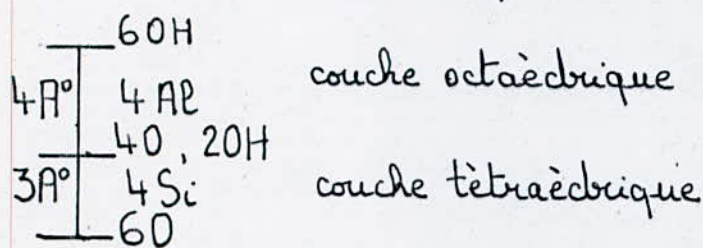 6OH
4A° 4Al couche octaèdrique
4O, 2OH
3A° 4Si couche tètraèdrique
6O